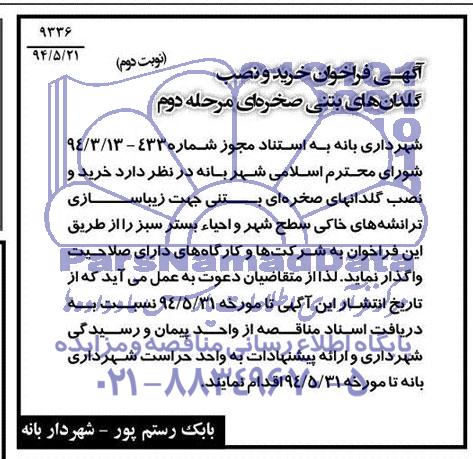 ۹۳۳۶
۹۴/۵/۲۱
آگهـی فراخوان خرید و نصب
(نوبت دوم)
گلدان‌های بتنی صخره‌ای مرحله دوم
شهرداری بانه به استناد مجوز شماره ۴۳۳ - ۹۴/۳/۱۳
شورای محترم اسلامی شهر بانه در نظر دارد خرید و
نصب گلدانهای صخره‌ای بتنی جهت زیباسازی
ترانشه‌های خاکی سطح شهر و احیاء بستر سبز را از طریق
این فراخوان به شرکت‌ها و کارگاه‌های دارای صلاحیت
واگذار نماید. لذا از متقاضیان دعوت به عمل می آید که از
تاریخ انتشار این آگهی تا مورخه ۹۴/۵/۳۱ نسبت به
دریافت اسناد مناقصه از واحد پیمان و رسیدگی
شهرداری و ارائه پیشنهادات به واحد حراست شهرداری
بانه تا مورخه ۹۴/۵/۳۱ اقدام نمایند.
بابک رستم پور - شهردار بانه
ParsNamadData
پایگاه اطلاع رسانی مناقصه و مزایده
۰۲۱-۸۸۳۴۹۶۷۰-۵